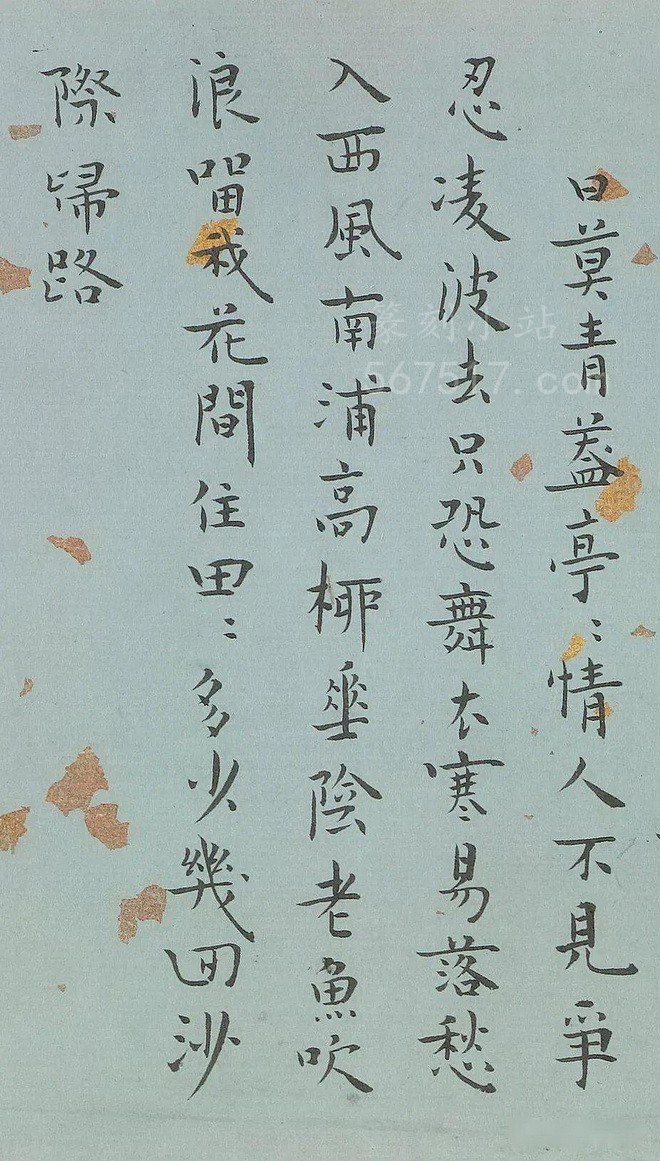 日莫青葢亭:情人不見爭
忍凌波去只恐舞衣寒易落愁
入西風南浦高桺垂陰老魚吹
浪留我花間住田:多少幾回沙
際歸路
篆刻小站